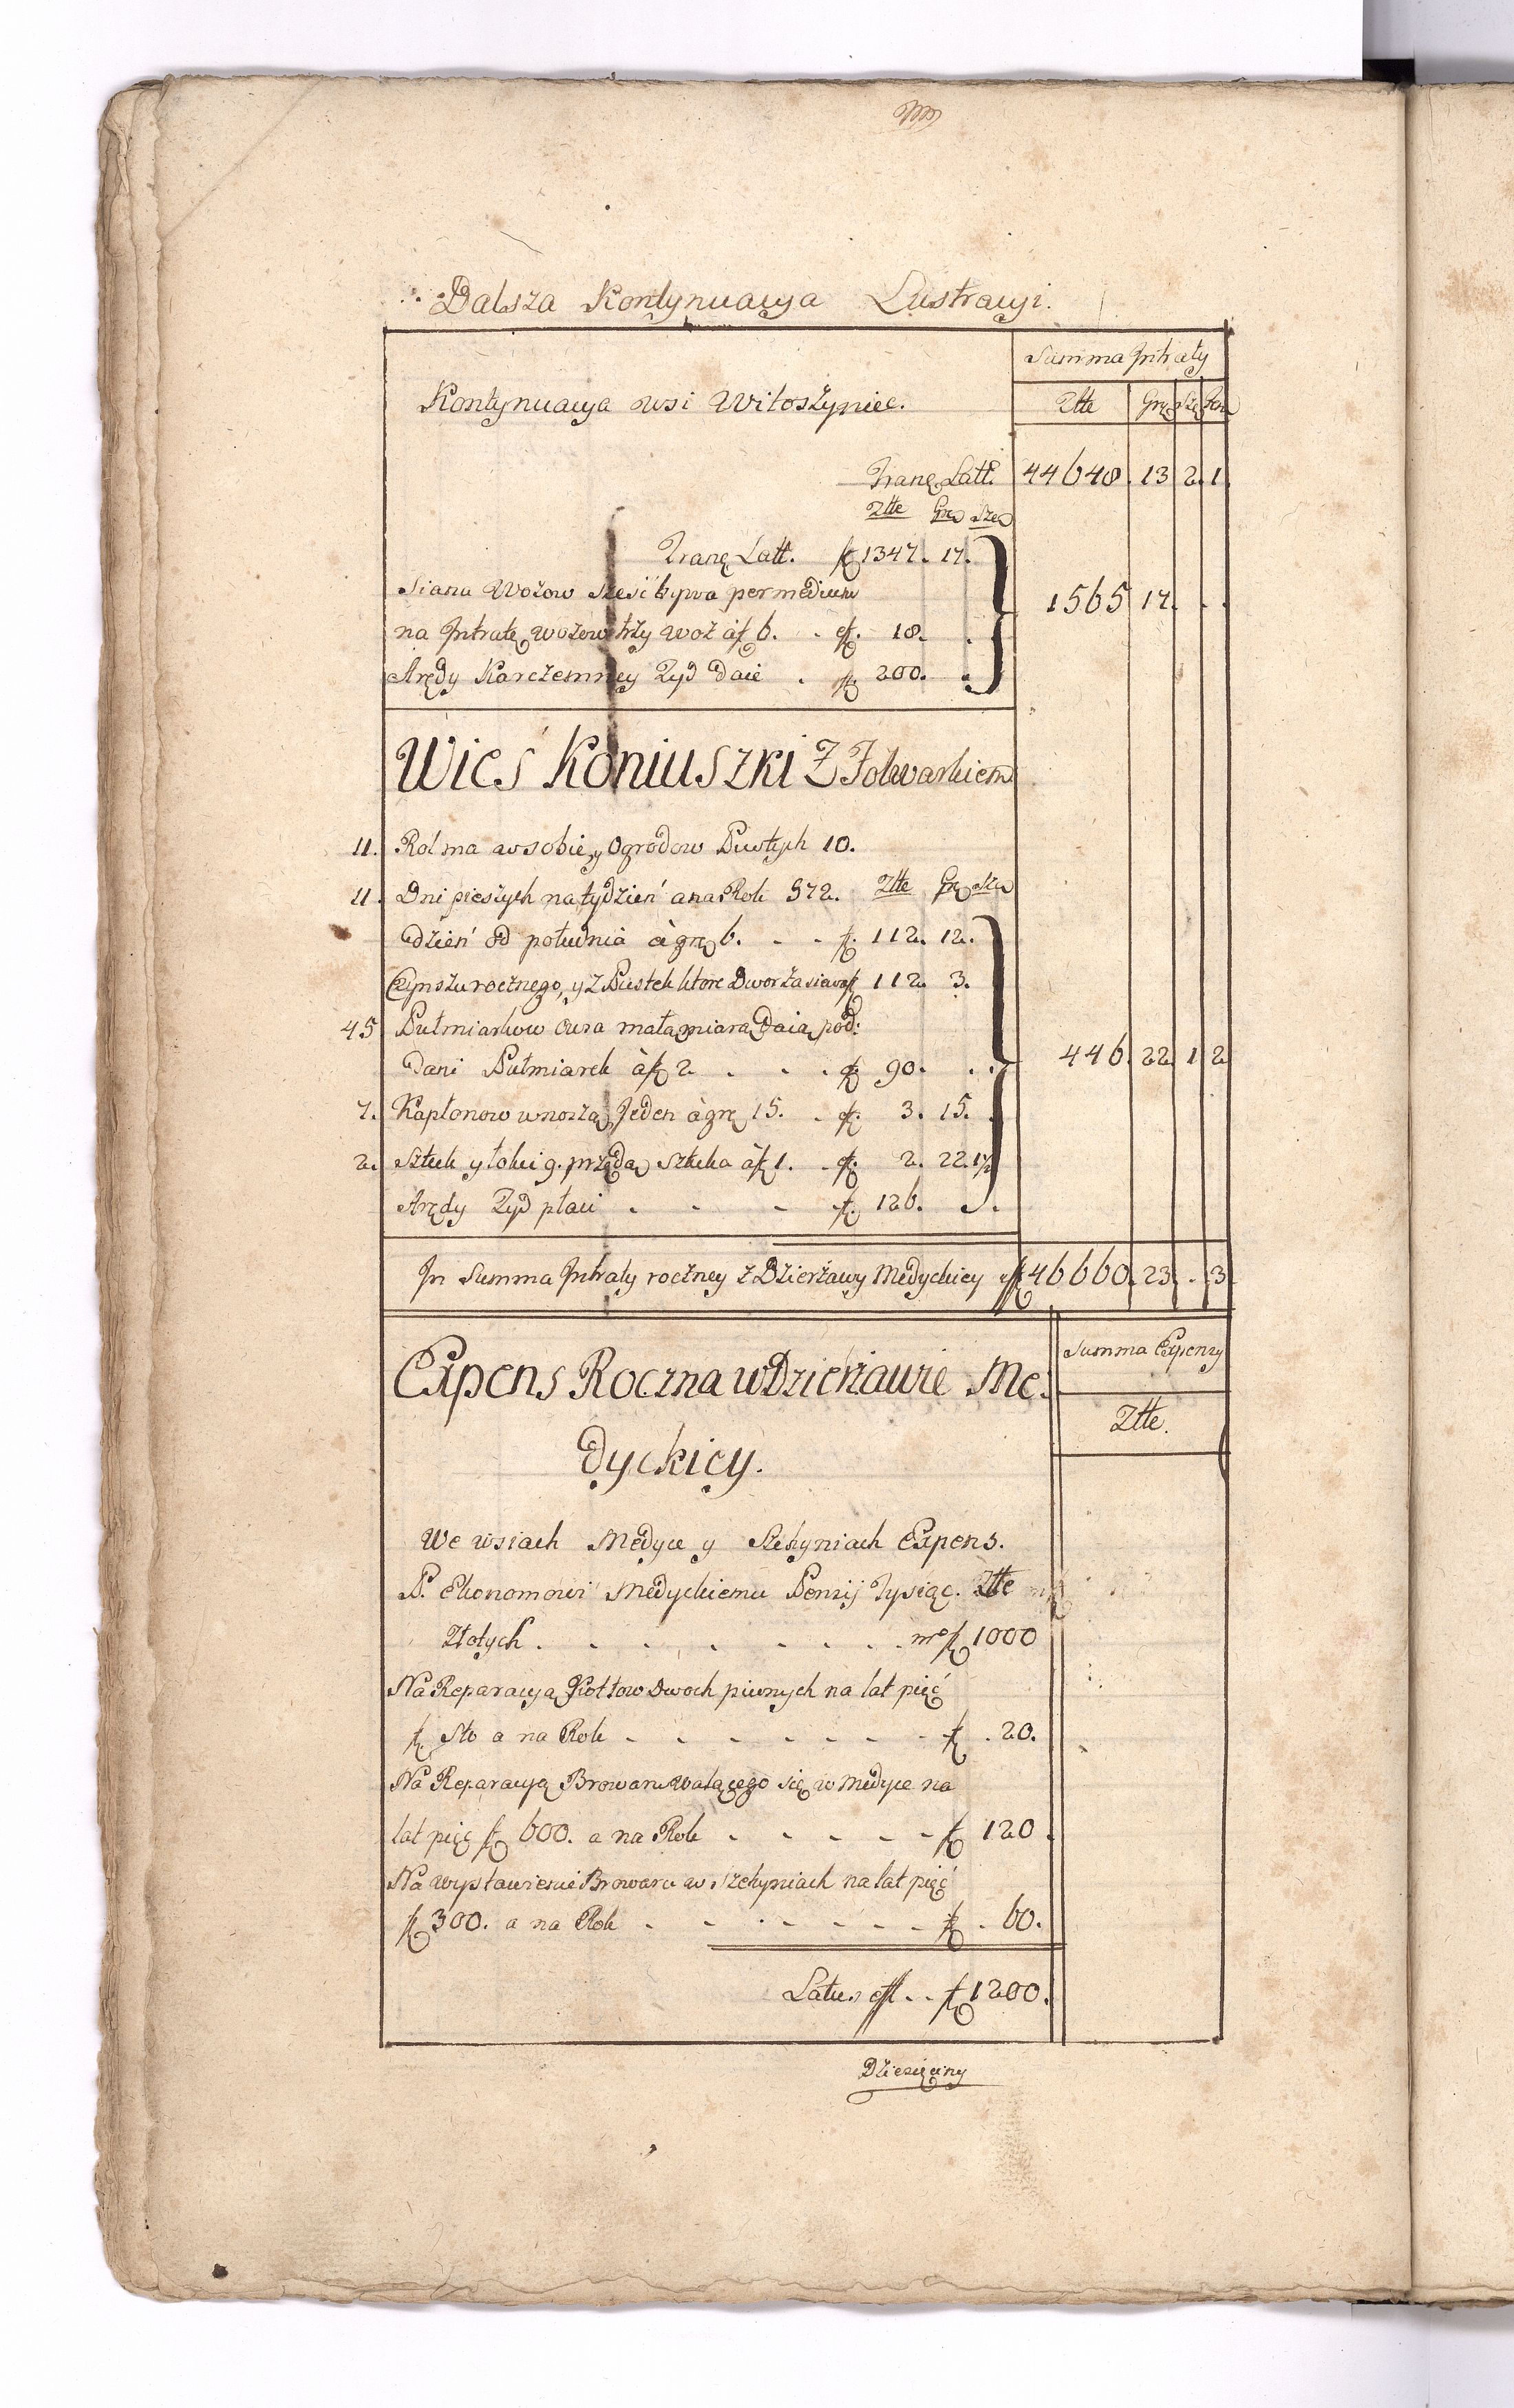 Dalsza Kontynuacya Lustracyi.
Summa Jntraty
Kontynuacya wsi Witoszyniec.
Złłe Gro Sze
Tranę Latt. 44648. 13 2. 1
Złłe Gro Sze
Tranę Latt. f 1347. 17.
Siana Wozow sześć bywa per medium
na Jntratę wozow trzy woz à f 6. f. 18.
1565 17.
Arędy Karczemney Zyd daie . f 200.
Wieś Koniuszki Z Folwarkiem
11. Rol ma w sobie, y Ogrodow Pustych 10.
11. Dni pieszych na tydzień a na Rok 572. Złłe Gro Sze
dzień od południa à gro 6. . . f. 112. 12.
Czynszu rocznego, y z Pustek ktore Dwor zasiewa f 112. 3.
45 Pułmiarkow owsa małą miarą daią pod:
Dani Pułmiarek à f 2 . . . f 90. . .
446. 22 1 2
7. Kapłonow wnoszą Jeden à gro 15. . f. 3. 15.
2. Sztuk y łokci 9. przędą sztuka à f 1. . f. 2. 22. 1½
Arędy Zyd płaci . . . f. 126.
Jn Summa Jntraty roczney z Dzierżawy Medyckiey f 46660. 23. . 3
Expens Roczna w Dzierżawie Me:
dyckiey.
Summa Expensy
Złłe.
We wsiach Medyce y Szechyniach Expens.
P. Ekonomowi Medyckiemu Pensij Tysiąc. Złłe
Złotych . . . . . . . . f 1000
Na Reparacyą Kotłow Dwoch piwnych na lat pięć
f. Sto a na Rok . . . . . . . f . 20.
Na Reparacyą Browaru walącego się w Medyce na
lat pięć f 600. a na Rok . . . . . f 120.
Na wystawienie Browaru w Szechyniach na lat pięć
f 300. a na Rok . . . . . . . f . 60.
Latus . . f 1200.
Dziesięciny